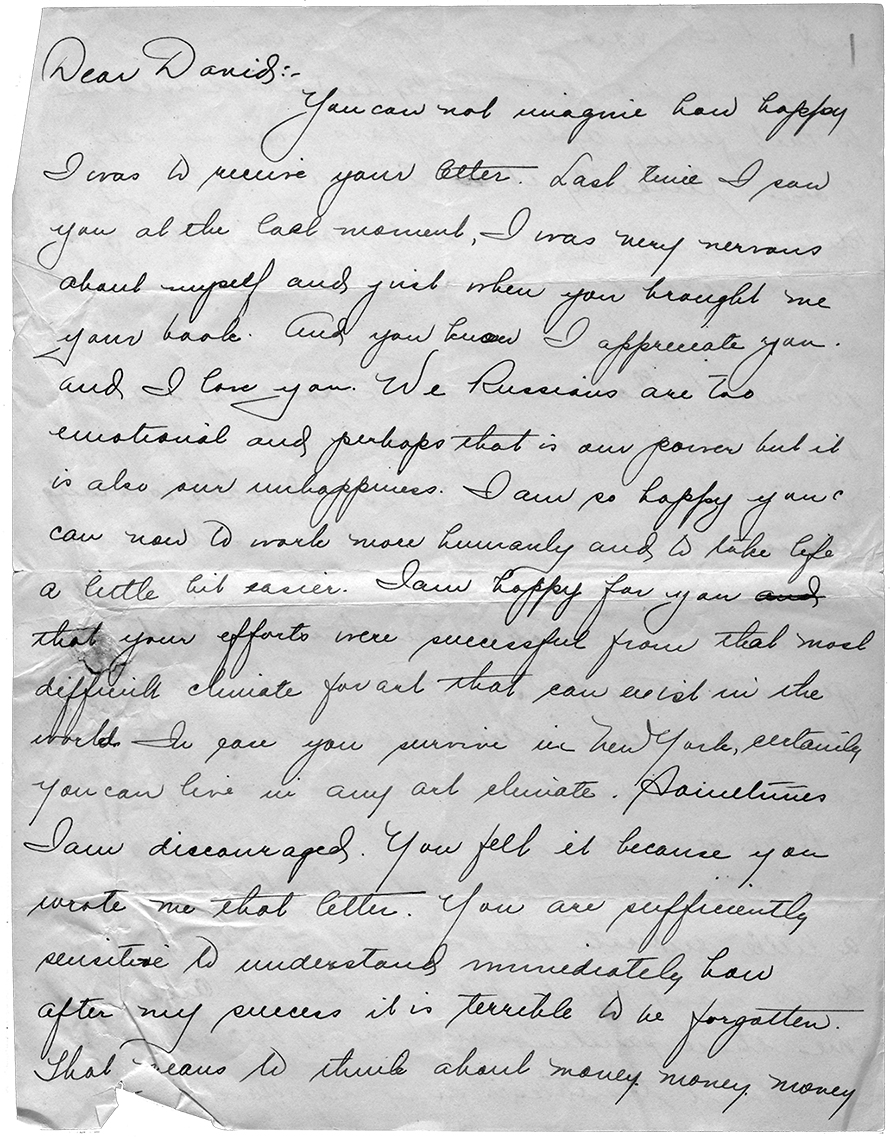 1
Dear David:-
You can not imagine how happy
I was to receive your letter. Last time I saw
you at the last moment, I was very nervous
about myself and just when you brought me
your book. And you know I appreciate you.
and I love you. We Russians are too
emotional and perhaps that is our power but it
is also our unhappiness. I am so happy you
can now to work more humanly and to take life
a little bit easier. I am happy for you and
that your efforts were successful from that most
difficult climate for art that can exist in the
world. In case you survive in New York, certainly
you can live in any art climate. Sometimes
I am discouraged. You felt it because you
wrote me that letter. You are sufficiently
sensitive to understand immediately how
after my success it is terrible to be forgotten.
That means to think about money money money